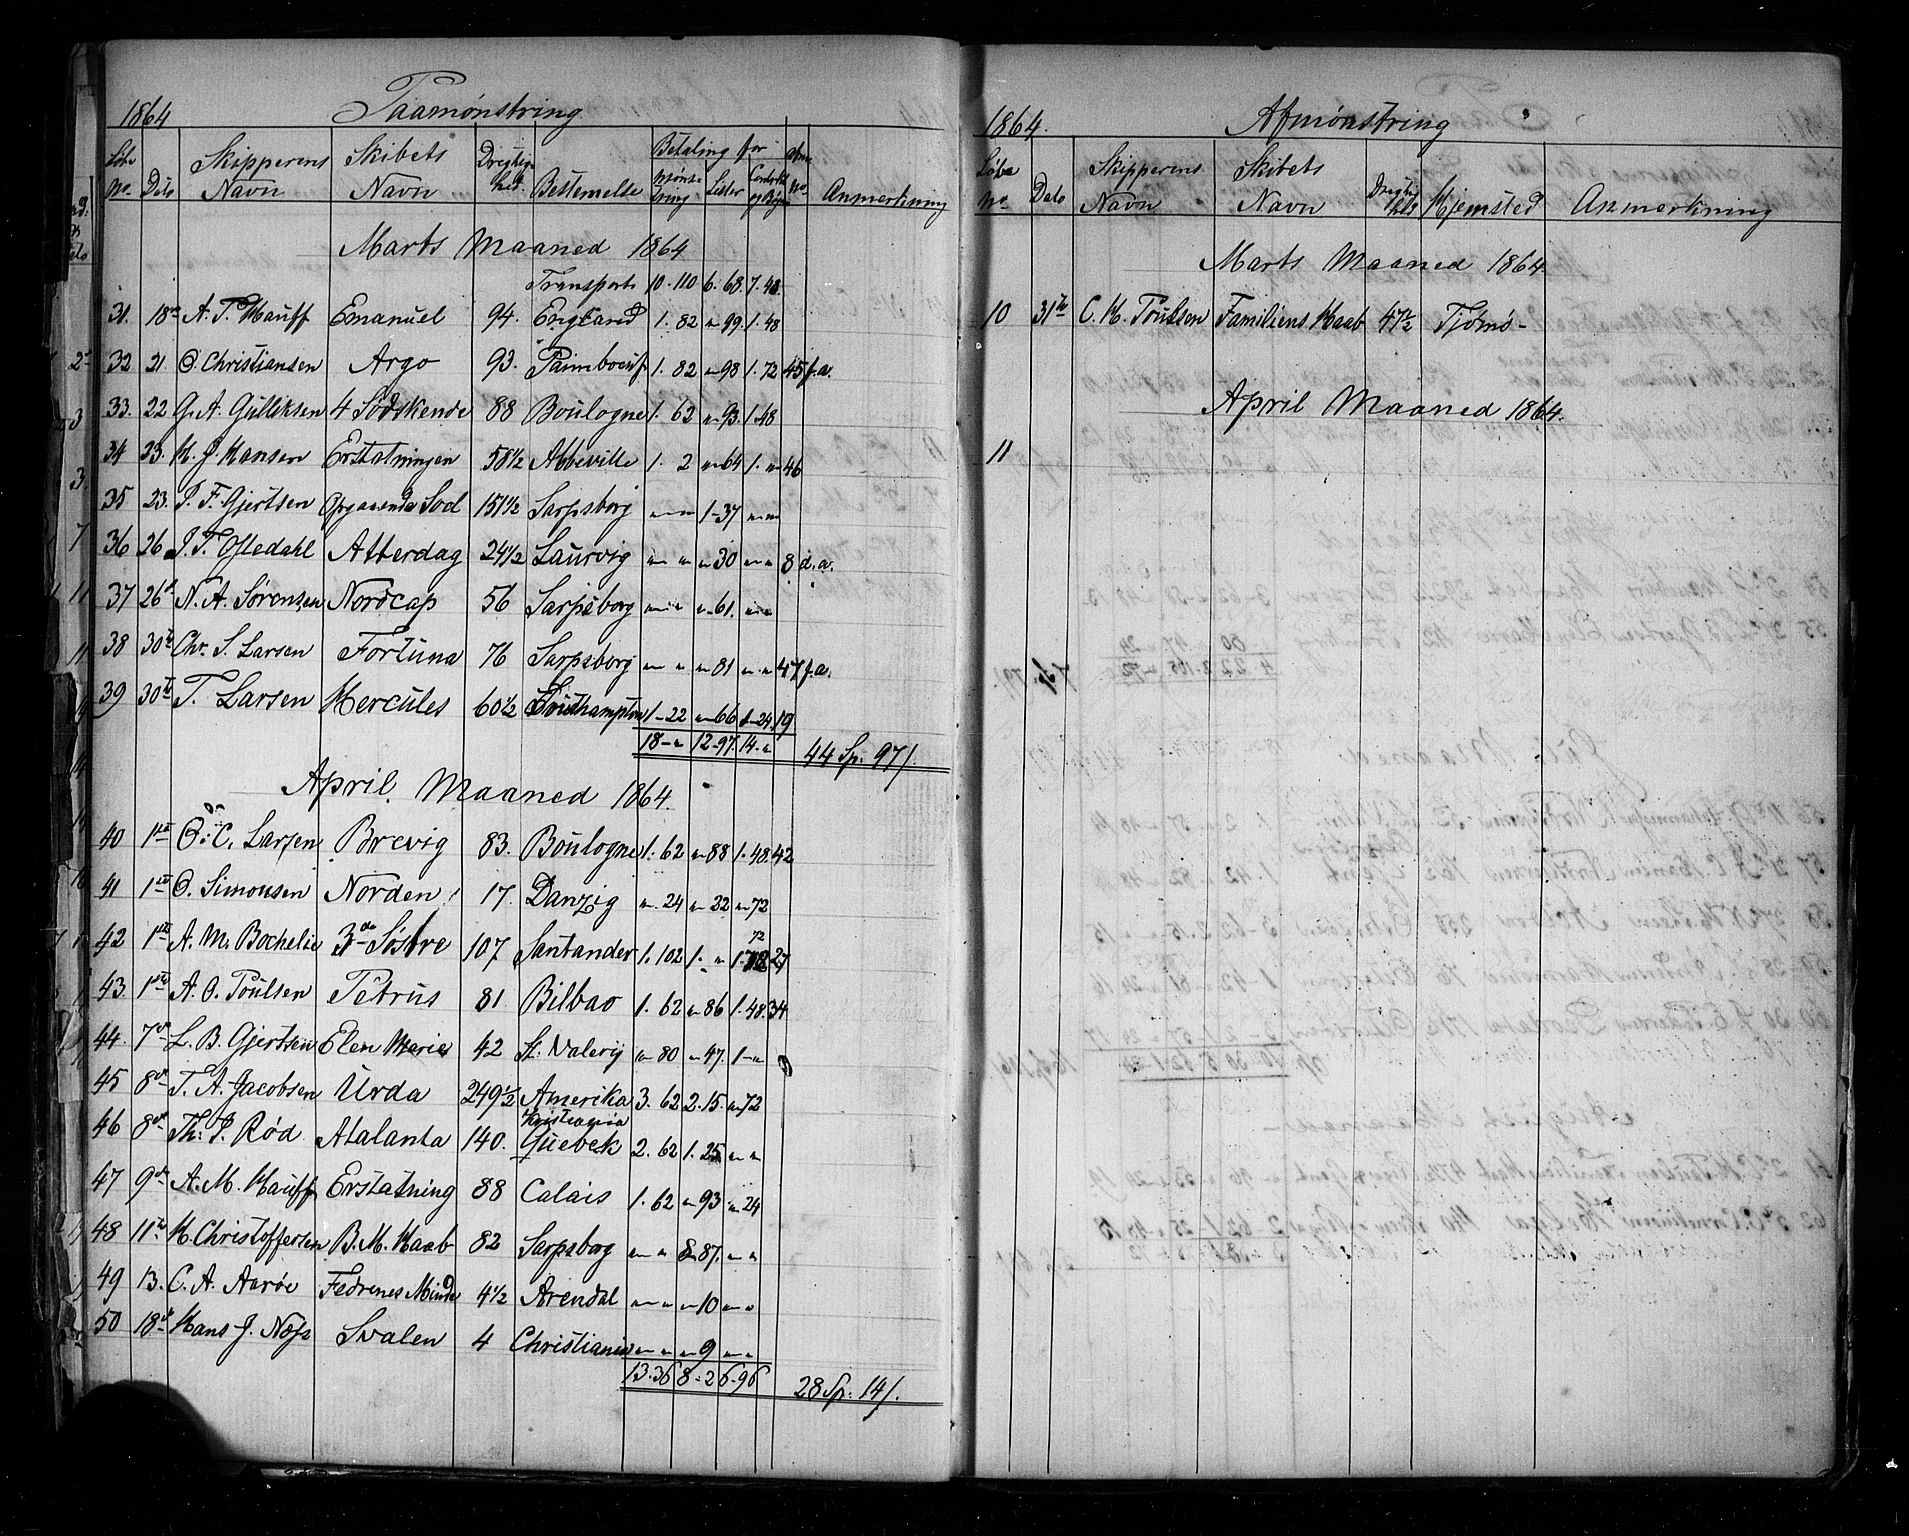 1864 Paamønstring
Løbe No. Dato Skipperens Navn Skibets Navn Drægtighed. Bestemelse Betaling for Mønstring Lister Anmerkning
Marts Maaned 1864
Transport 10. 110 6. 68. 7. 48.
31. 18de A. T. Hauff Emanuel 94. England 1. 82 " 99. 1. 48
32 21. O. Christiansen Argo 93. Paimboeuf 1. 82 " 98 1. 72 45 f.a.
33. 22 G. A. Gulliksen 4 Sødskende 88 Boulogne 1. 62 " 93. 1. 48
34 23. H. J. Hansen Erstatningen 58 1/2 Abbeville 1. 2 " 64 1. " 46
35 23. P. F. Gjertsen Opgaaende Sol 151 1/2 Sarpsborg " " 1-37 " "
36 26 P. T. Ofledahl Atterdag 24 1/2 Laurvig " " " 30 " " 8 d.a.
37 26de N. A. Sørensen Nordcap 56 Sarpsborg " " " 61. " "
38 30te Chr. S. Larsen Fortuna 76 Sarpsborg " " " 81 " " 47 f.a.
39 30te T. Larsen Hercules 60 1/2 Southampton 1-22 " 66 1-24 19
18-" 12-97. 14-" 44 Sp. 97/.
April Maaned 1864.
40 1ste O. C. Larsen Brevig 83. Boulogne 1. 62 " 88 1. 48. 42
41 1ste O. Simonsen Norden 17. Danzig ". 24 " 22 " 72
42 1ste A. M. Bochelie 3de Søstre 107 Santander 1. 102 1. " 1. 72 27
43. 1ste A. O. Poulsen Petrus 81. Bilbao 1. 62 " 86 1. 48. 34
44. 7de L. B. Gjertsen Elen Marie 42 St. Valery " 80 " 47. 1-" 9
45 8de T. A. Jacobsen Urda 249 1/2 Amerika 3. 62 2. 15. " 72
46 8de Th: P. Rød Atalanta 140. Kristiania Quebek 2. 62 1. 25 " "
47 9de A. M. Hauff Erstatning 88 Calais 1. 62 " 93 " 24
48 11te H. Christoffersen B. M. Haab 82 Sarpsborg " " 87. " "
49 13. C. A. Aarøe Fedrenes Minde 4 1/2 Arendal " " " 10 " "
50 18de Hans J. Næss Svalen 4 Christiania " " " 9 " "
13. 36 8-2 6. 96 28 Sp. 14/.
1864. Afmønstring
Løbe No. Dato Skipperens Navn Skibets Navn Drægtighed Hjemsted Anmerkning
Marts Maaned 1864.
10 31te C. H. Poulsen Familiens Haab 47 1/2 Tjømø-
April Maaned 1864.
11